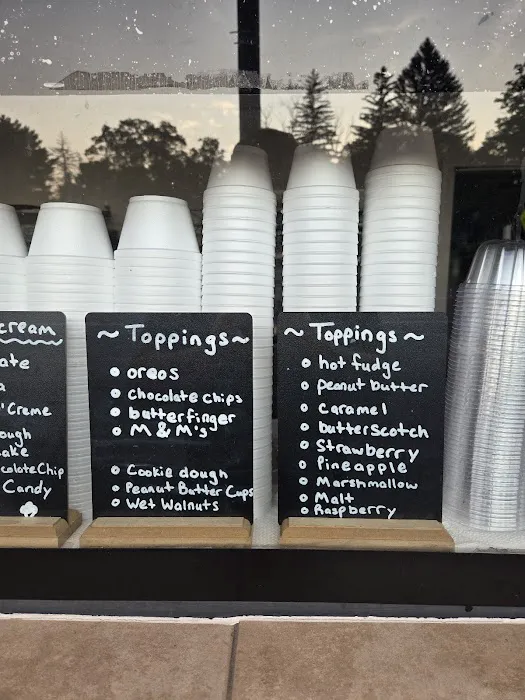 cream
ate
a
'Creme
ough
ake
colateChip
Candy
~ Toppings ~
oreos
chocolate chips
butterfinger
M & M's
Cookie dough
Peanut Butter Cups
Wet Walnuts
~ Toppings ~
hot fudge
peanut butter
caramel
butterscotch
Strawberry
Pineapple
Marshmallow
Malt
Raspberry